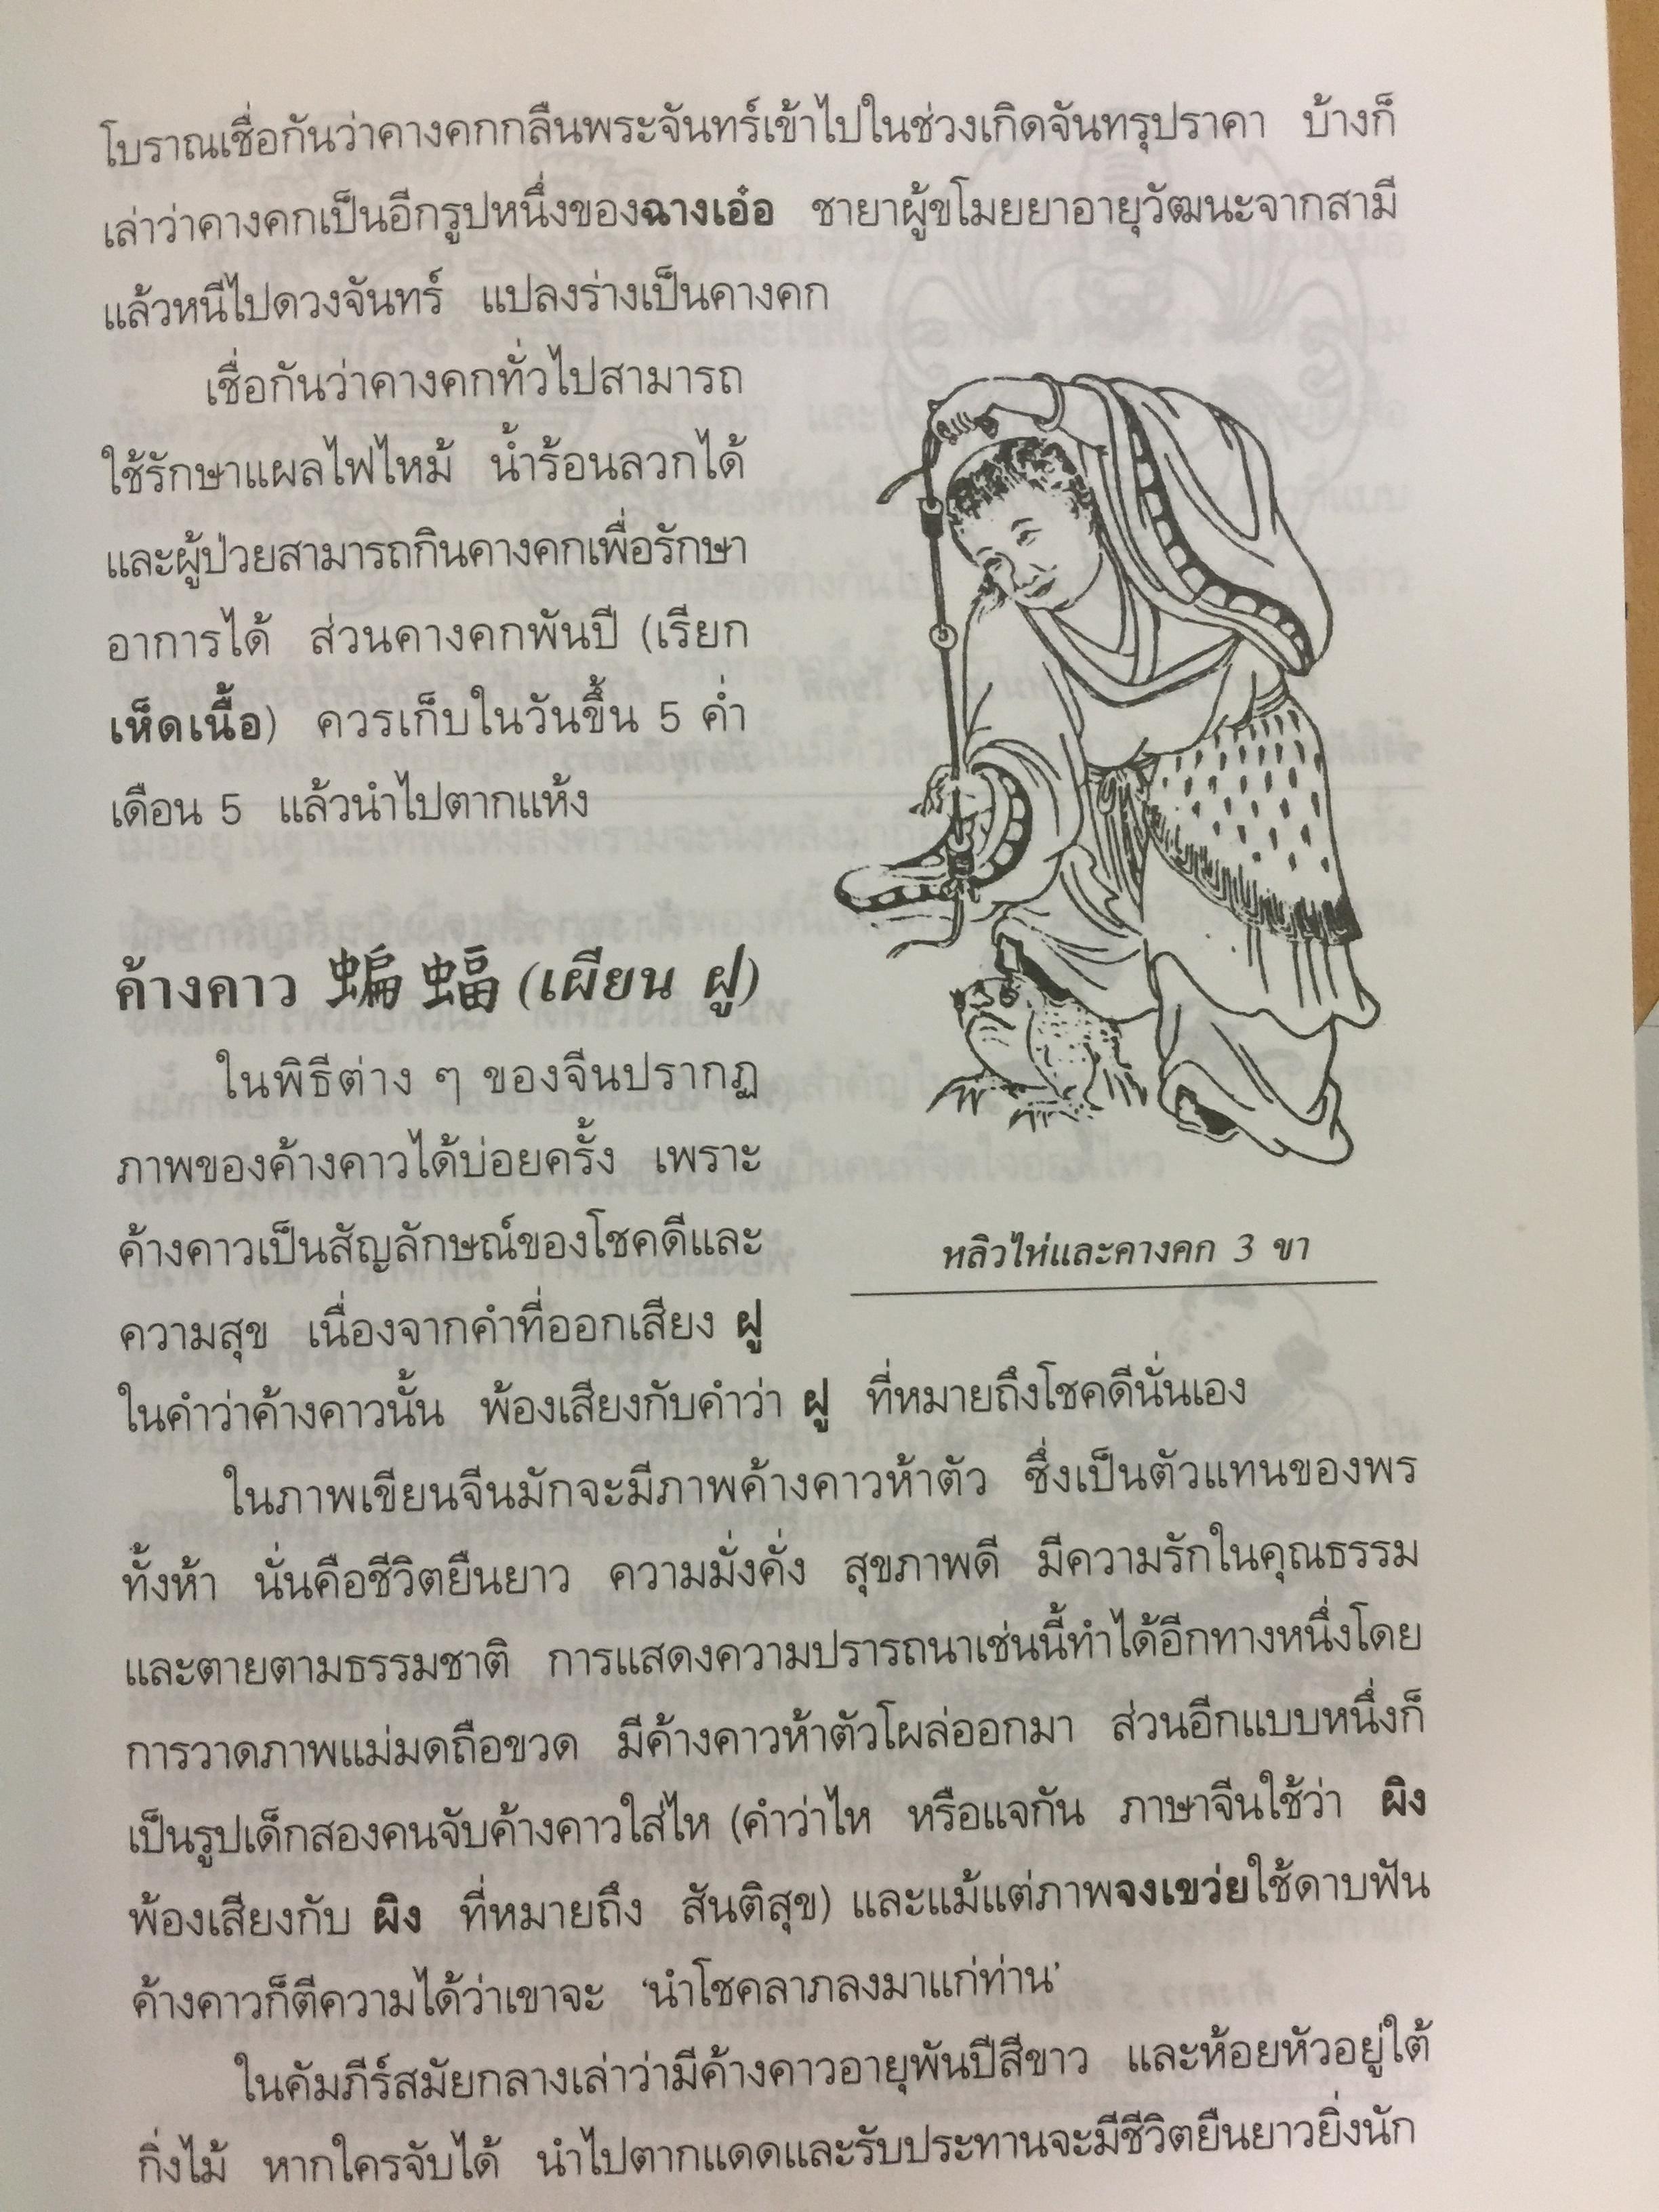 โบราณเชื่อกันว่าคางคกกลืนพระจันทร์เข้าไปในช่วงเกิดจันทรุปราคา บ้างก็
เล่าว่าคางคกเป็นอีกรูปหนึ่งของฉางเอ๋อ ชายาผู้ขโมยยาอายุวัฒนะจากสามี
แล้วหนีไปดวงจันทร์ แปลงร่างเป็นคางคก
เชื่อกันว่าคางคกทั่วไปสามารถ
ใช้รักษาแผลไฟไหม้ น้ำร้อนลวกได้
และผู้ป่วยสามารถกินคางคกเพื่อรักษา
อาการได้ ส่วนคางคกพันปี (เรียก
เห็ดเนื้อ) ควรเก็บในวันขึ้น 5 ค่ำ
เดือน 5 แล้วนำไปตากแห้ง
ค้างคาว 蝙蝠 (เผียน ฝู)
ในพิธีต่าง ๆ ของจีนปรากฏ
ภาพของค้างคาวได้บ่อยครั้ง เพราะ
ค้างคาวเป็นสัญลักษณ์ของโชคดีและ
ความสุข เนื่องจากคำที่ออกเสียง ฝู
ในคำว่าค้างคาวนั้น พ้องเสียงกับคำว่า ฝู ที่หมายถึงโชคดีนั่นเอง
หลิวไห่และคางคก 3 ขา
ในภาพเขียนจีนมักจะมีภาพค้างคาวห้าตัว ซึ่งเป็นตัวแทนของพร
ทั้งห้า นั่นคือชีวิตยืนยาว ความมั่งคั่ง สุขภาพดี มีความรักในคุณธรรม
และตายตามธรรมชาติ การแสดงความปรารถนาเช่นนี้ทำได้อีกทางหนึ่งโดย
การวาดภาพแม่มดถือขวด มีค้างคาวห้าตัวโผล่ออกมา ส่วนอีกแบบหนึ่งก็
เป็นรูปเด็กสองคนจับค้างคาวใส่ไห (คำว่าไห หรือแจกัน ภาษาจีนใช้ว่า ผิง
พ้องเสียงกับ ผิง ที่หมายถึง สันติสุข) และแม้แต่ภาพจงเขว่ยใช้ดาบฟัน
ค้างคาวก็ตีความได้ว่าเขาจะ ‘นำโชคลาภลงมาแก่ท่าน’
ในคัมภีร์สมัยกลางเล่าว่ามีค้างคาวอายุพันปีสีขาว และห้อยหัวอยู่ใต้
กิ่งไม้ หากใครจับได้ นำไปตากแดดและรับประทานจะมีชีวิตยืนยาวยิ่งนัก